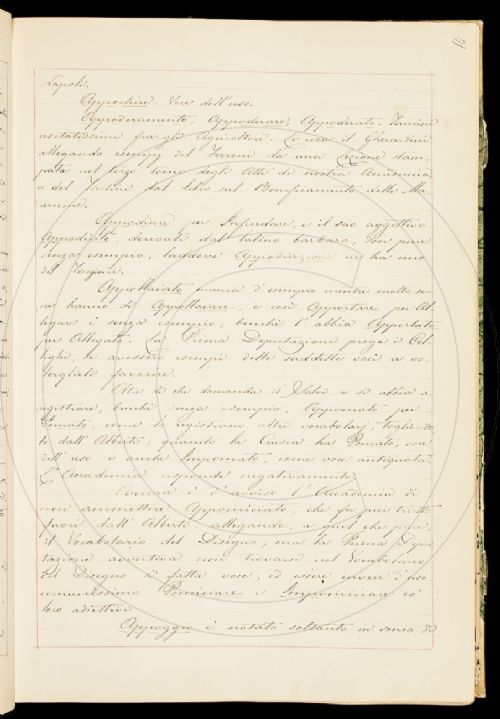 Napoli.
Appostiere. Voce dell'uso.
Appoderamento, Appoderare, Appoderato. Termini
usitatissimi fra gli Agricoltori. Cita il Gherardini
allegando esempj del Ferroni, da una Lezione stam-
pata nel terzo tomo degli Atti di nostra Accademia,
e del dal libro sul Bonificamento delle Ma-
remme.
Appodiare per Infeudare, e il suo aggettivo
Appodiato, derivati dal latino barbaro, son pure
senza esempio, laddove Appodiazione ne ha uno
del Targioni.
Appollaiato manca d'esempio mentre molte se
ne hanno di Appollaiare, e così Apportare per Al-
legare è senza esempio, benchè l'abbia Apportato
per Allegato. La Prima Deputazione prega i Col-
leghi, se avessero esempi delle suddette voci a vo-
lerglieli favorire.
Oltre di che domanda il se si abbia a
registrare, benchè senza esempio, Appomato per
Pomato, come lo registrano altri vocabolarj, toglien-
dolo dall'Alberti; quando la Crusca ha Pomato, voce
dell'uso, e anche Impomato, come voce antiquata.
L'Accademia risponde negativamente.
Ancora è d'avviso l'Accademia di
non ammettere Appomiciato, che fu pure tratto
fuori dall'Alberti, allegando, a quel che pare,
il Vocabolario del Disegno, ma la Prima Depu-
tazione avvertiva non trovarsi nel Vocabolario
del Disegno sì fatta voce, ed essere invece d'uso
comunissimo Pomiciare e Impomiciare co'
loro adiettivi.
Appoggio è notato soltanto in senso di